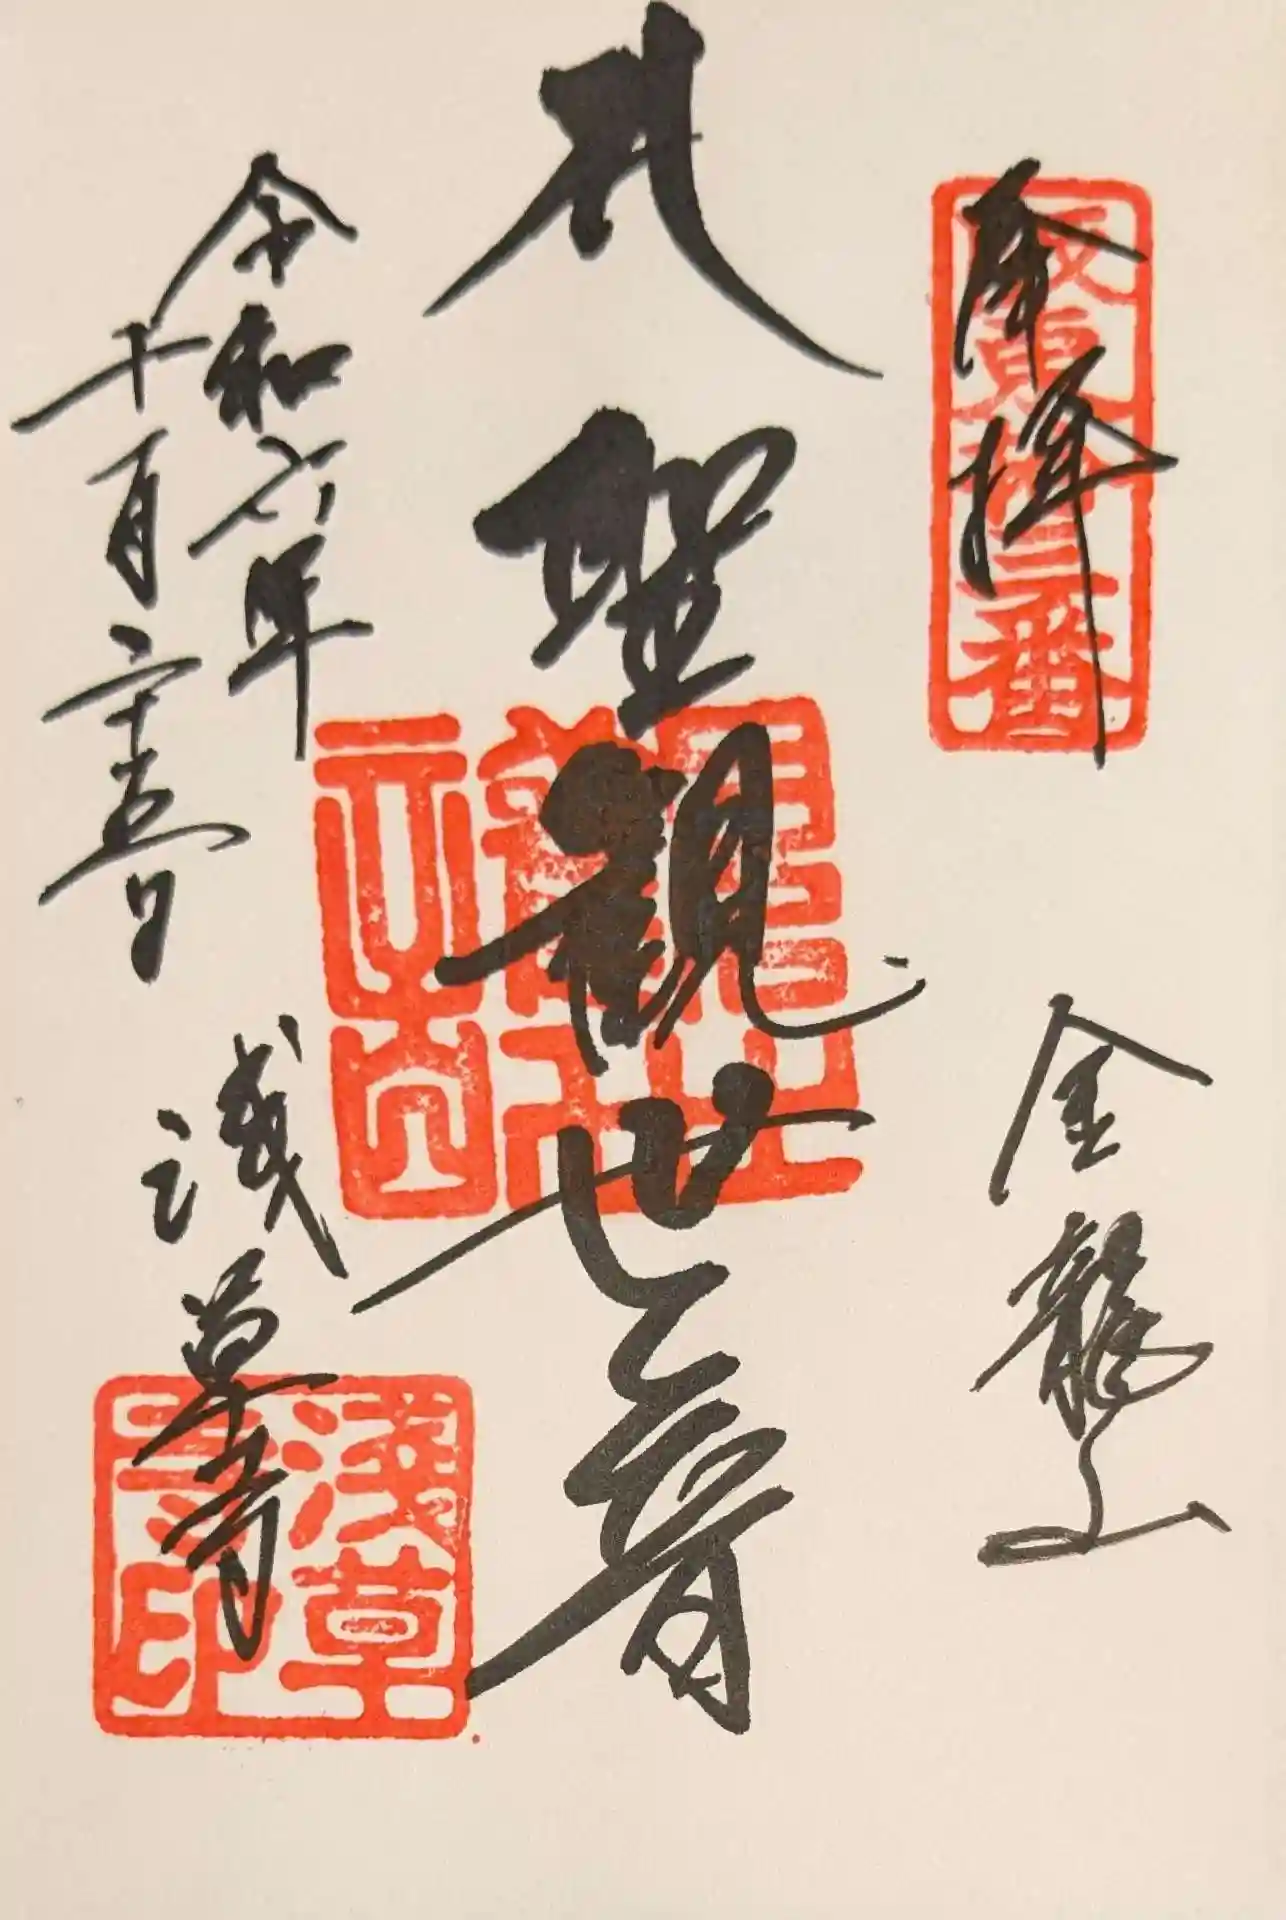 坂東拾三番
奉拝
金龍山
聖観世音
令和六年
十月二十五日
浅草寺
淺草
寺印